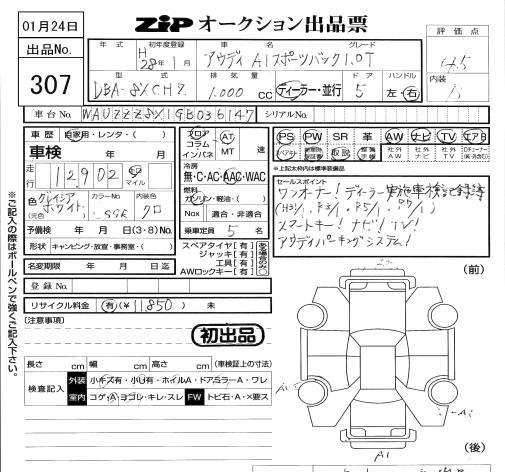 01月24日
ZiP オークション出品票
評価点
4.5
内装
出品No.
307
年式
初年度登録
車名
グレード
H 28年 1月
アウディ A1スポーツバック 1.0T
型式
排気量
ドア
ハンドル
DBA-8XCHZ
1.000 cc
ディーラー・並行
5
左・右
車台No. WAUZZZ8X1GB036147
シリアルNo.
車歴 自家用・レンタ・( )
車検 年 月
走行 12902 キロ マイル
色 (元色) グレイシアホワイト
カラーNo.
内装色 クロ
予備検 年 月 日(3・8)No.
形状 キャンピング・放宣・事務室・( )
フロア コラム インパネ
AT MT 速
冷房
無・C・AC・AAC・WAC
燃料
ガソリン・軽油・( )
Nox 適合・非適合
乗車定員 5 名
PS PW SR 革 AW ナビ TV エアB
取説
社外 社外 社外
※上記太枠内は標準装備品
セールスポイント
ワンオーナー! ディーラー実施車検記録簿
スマートキー! ナビ! TV!
アウディパーキングシステム!
名変期限 年 月 日迄
スペアタイヤ[有]
ジャッキ[有]
工具[有]
AWロックキー[有]
登録No.
リサイクル料金 有(¥ 11850 ) 未
(注意事項)
初出品
(前)
長さ cm 幅 cm 高さ cm (車検証上の寸法)
検査記入
外装 小キズ有・小U有・ホイルA・ドアミラーA・ワレ
室内 コゲ・A・ヨゴレ・キレ・スレ FW トビ石・A・×要ス
A1
(後)
※ご記入の際はボールペンで強くご記入下さい。